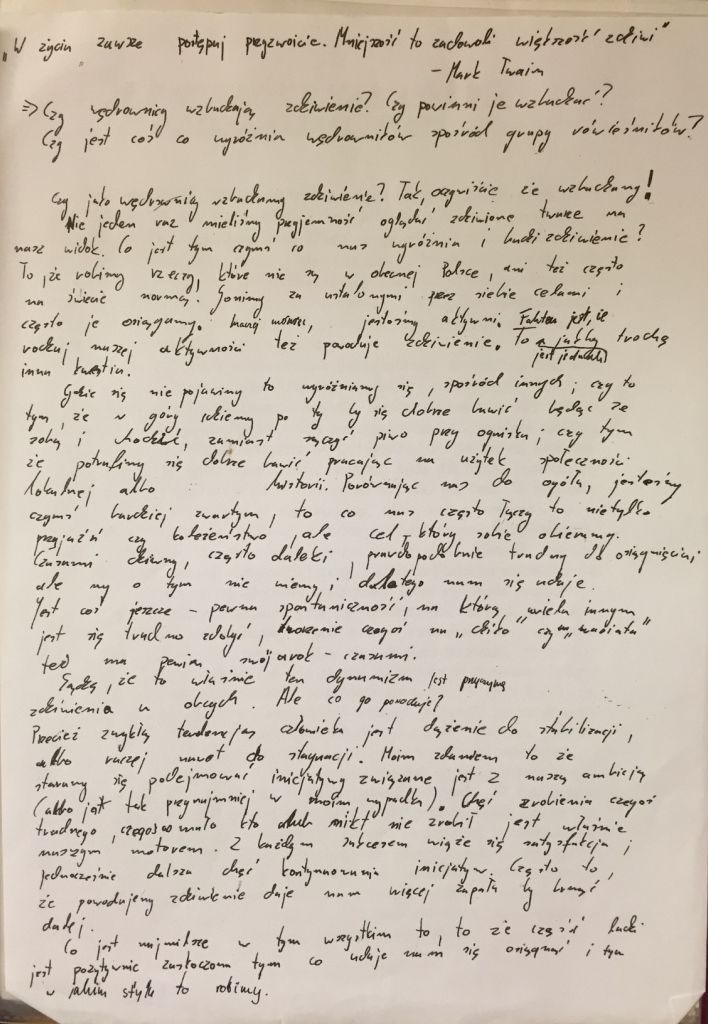 "W życiu zawsze postępuj przyzwoicie. Mniejszość to zadowoli większość zdziwi"
- Mark Twain
=> Czy wędrownicy wzbudzają zdziwienie? Czy powinni je wzbudzać?
Czy jest coś co wyróżnia wędrowników spośród grupy rówieśników?
Czy jako wędrownicy wzbudzamy zdziwienie? Tak, oczywiście że wzbudzamy!
Nie jeden raz mieliśmy przyjemność oglądać zdziwione twarze na
nasz widok. Co jest tym czymś co nas wyróżnia i budzi zdziwienie?
To, że robimy rzeczy, które nie są w obecnej Polsce, ani też często
na świecie normą. Gonimy za ustalonymi przez siebie celami i
często je osiągamy. Inaczej mówiąc, jesteśmy aktywni. Faktem jest, że
rodzaj naszej aktywności też powoduje zdziwienie. To jest jednak trochę
inna kwestia.
Gdzie się nie pojawimy to wyróżniamy się, spośród innych; czy to
tym, że w góry idziemy po ty by się dobrze bawić będąc ze
sobą i chodzić, zamiast sączyć piwo przy ognisku; czy tym
że potrafimy się dobrze bawić pracując na użytek społeczności
lokalnej albo historii. Porównując nas do ogółu, jesteśmy
czymś bardziej zwartym, to co nas często łączy to nietylko
przyjaźń czy koleżeństwo, ale cel - który sobie obieramy.
Czasami dziwny, często daleki, prawdopodobnie trudny do osiągnięcia;
ale my o tym nie wiemy i dlatego nam się udaje.
Jest coś jeszcze - pewna spontaniczność, na którą wielu innym
jest się trudno zdobyć, tworzenie czegoś na "dziko" czy "wariata"
też ma pewien swój urok - czasami.
Sądzę, że to właśnie ten dynamizm jest przyczyną
zdziwienia u obcych. Ale co go powoduje?
Przecież zwykłą tendencją człowieka jest dążenie do stabilizacji,
albo raczej nawet do stagnacji. Moim zdaniem to że
staramy się podejmować inicjatywy związane jest z naszą ambicją
(albo jest tak przynajmniej w moim wypadku). Chęć zrobienia czegoś
trudnego, czegoś co mało kto albo nikt nie zrobił jest właśnie
naszym motorem. Z każdym sukcesem wiąże się satysfakcja i
jednocześnie dalsza chęć kontynuowania inicjatyw. Często to,
że powodujemy zdziwienie daje nam więcej zapału by brnąć
dalej.
Co jest najmilsze w tym wszystkim to, to że część ludzi
jest pozytywnie zaskoczona tym co udaje nam się osiągnąć i tym
w jakim stylu to robimy.